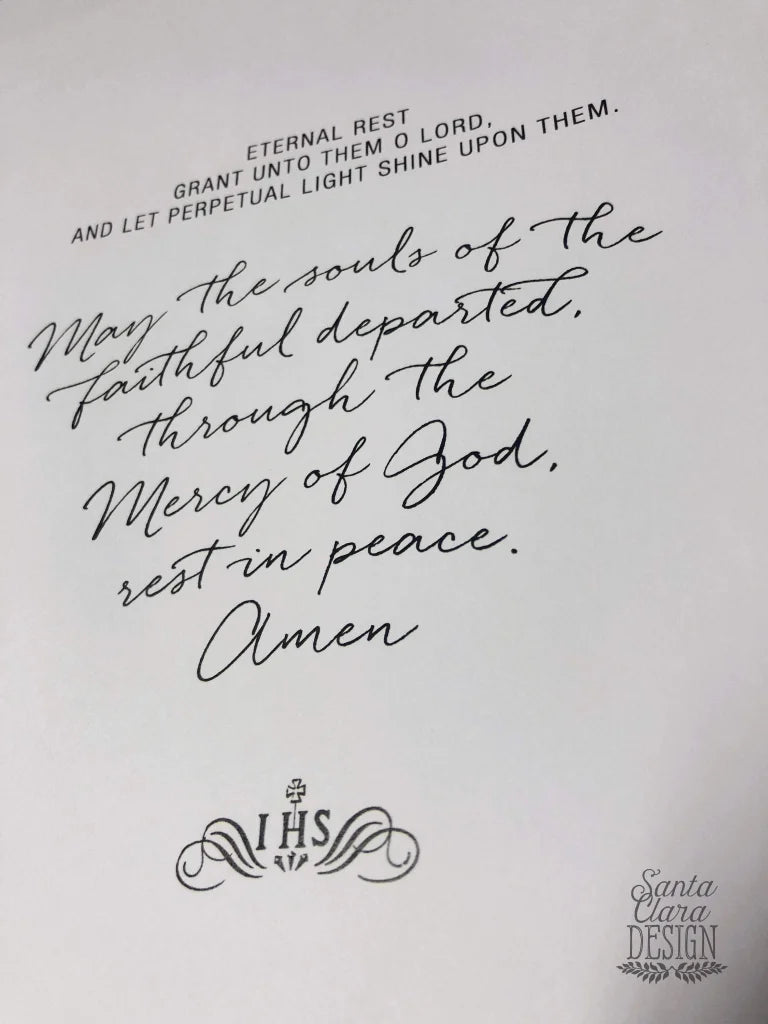 ETERNAL REST
GRANT UNTO THEM O LORD,
AND LET PERPETUAL LIGHT SHINE UPON THEM.
May the souls of the
faithful departed,
through the
Mercy of God,
rest in peace.
Amen
IHS
Santa
Clara
DESIGN